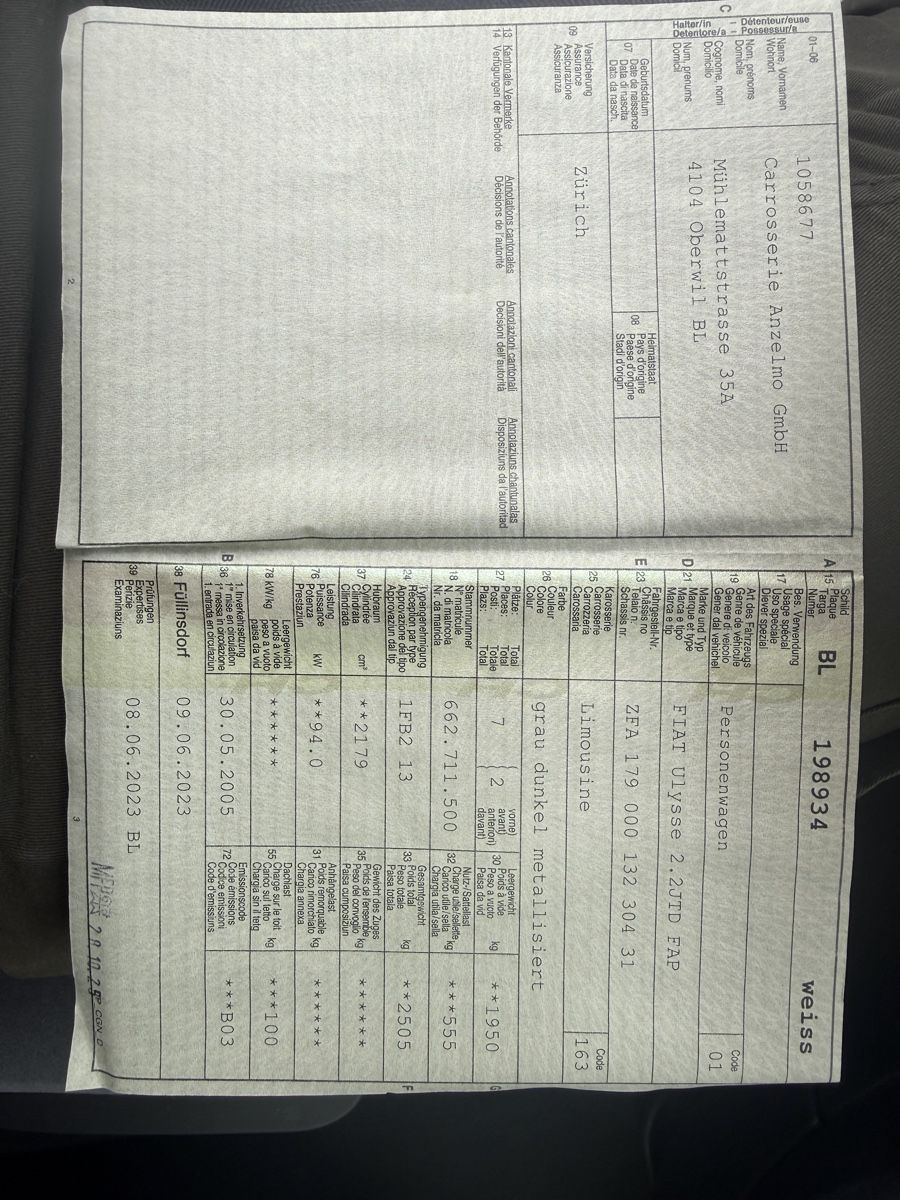 C
Halter/in – Détenteur/euse
Detentore/a – Possessur/a
01–06
Name, Vornamen
Wohnort
Nom, prénoms
Domicile
Cognome, nomi
Domicilio
Num, prenums
Domicil
1058677
Carrosserie Anzelmo GmbH
Mühlemattstrasse 35A
4104 Oberwil BL
07
Geburtsdatum
Date de naissance
Data di nascita
Data da nasch.
08
Heimatstaat
Pays d'origine
Paese d'origine
Stadi d'origin
09
Versicherung
Assurance
Assicurazione
Assicuranza
Zürich
13 Kantonale Vermerke Annotations cantonales Annotazioni cantonali Annotaziuns chantunalas
14 Verfügungen der Behörde Décisions de l'autorité Decisioni dell'autorità Disposiziuns da l'autoritad
2
A 15
Schild
Plaque
Targa
Numer
BL 198934 weiss
17
Bes. Verwendung
Usage spécial
Uso speciale
Diever spezial
19
Art des Fahrzeugs
Genre de véhicule
Genere di veicolo
Gener da vehichel
Personenwagen
Code
01
D 21
Marke und Typ
Marque et type
Marca e tipo
Marca e tip
FIAT Ulysse 2.2JTD FAP
E 23
Fahrgestell-Nr.
Châssis no
Telaio n.
Schassis nr.
ZFA 179 000 132 304 31
25
Karosserie
Carrosserie
Carrozzeria
Carossaria
Limousine
Code
163
26
Farbe
Couleur
Colore
Colur
grau dunkel metallisiert
27
Plätze: Total
Places: Total
Posti: Totale
Plazs: Total
7
2
vorne)
avant)
anteriori)
davant)
G
30
Leergewicht
Poids à vide
Peso a vuoto
Paisa da vid
kg
**1950
18
Stammnummer
N° matricule
N. di matricola
Nr. da matricla
662.711.500
32
Nutz-/Sattellast
Charge utile/sellette
Carico utile/sella
Chargia utila/sella
kg
***555
24
Typengenehmigung
Réception par type
Approvazione del tipo
Approvaziun dal tip
1FB2 13
33
Gesamtgewicht
Poids total
Peso totale
Paisa totala
kg
**2505
F
37
Hubraum
Cylindrée
Cilindrata
Cilindrada
cm³
**2179
35
Gewicht des Zuges
Poids de l'ensemble
Peso del convoglio
Paisa cumposiziun
kg
******
76
Leistung
Puissance
Potenza
Prestaziun
kW
**94.0
31
Anhängelast
Poids remorquable
Carico rimorchiato
Chargia annexa
kg
******
78 kW/kg
Leergewicht
poids à vide
peso a vuoto
paisa da vid
*****
55
Dachlast
Charge sur le toit
Carico sul tetto
Chargia sin il tetg
kg
***100
B 36
1. Inverkehrsetzung
1re mise en circulation
1a messa in circolazione
1. entrada en circulaziun
30.05.2005
72
Emissionscode
Code émissions
Codice emissioni
Code d'emissiuns
***B03
38 Füllinsdorf 09.06.2023
39
Prüfungen
Expertises
Perizie
Examinaziuns
08.06.2023 BL
3